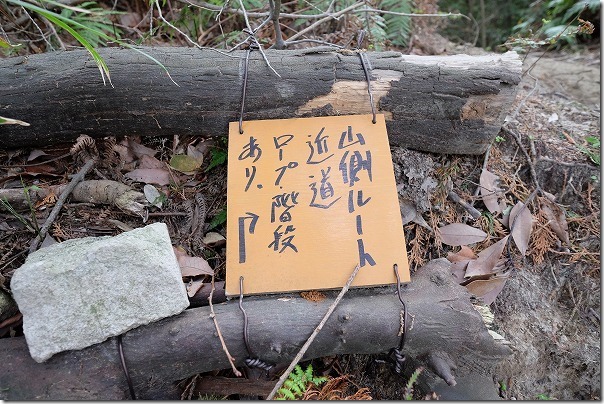 山側ルート
近道
ロープ階段
あり、↱